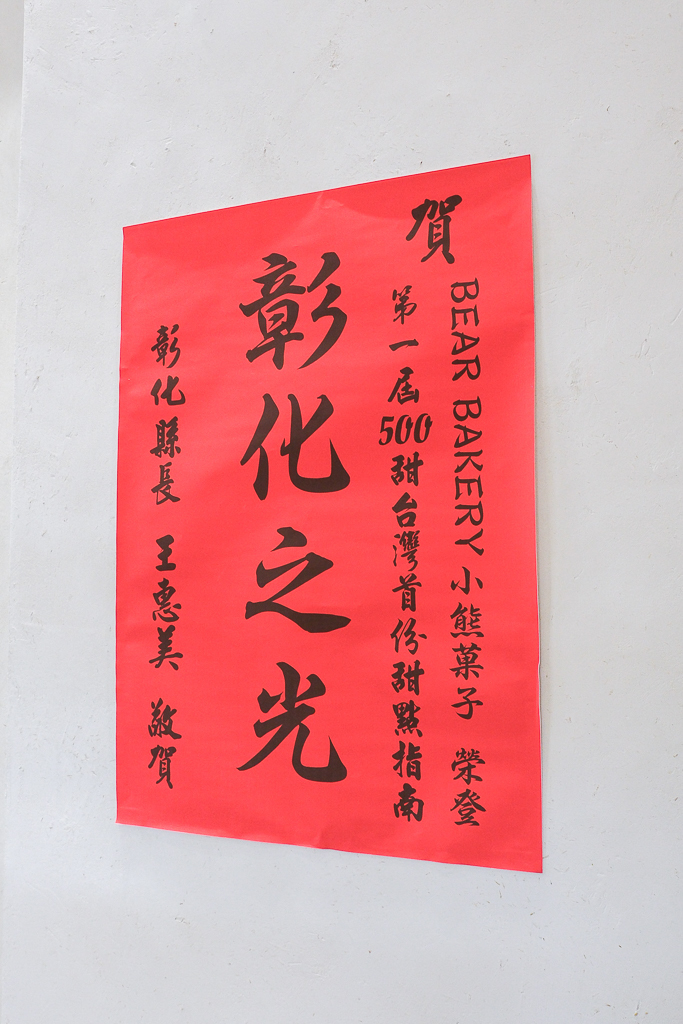 賀
BEAR BAKERY 小熊菓子 榮登
第一屆500甜台灣首份甜點指南
彰化之光
彰化縣長 王惠美 敬賀